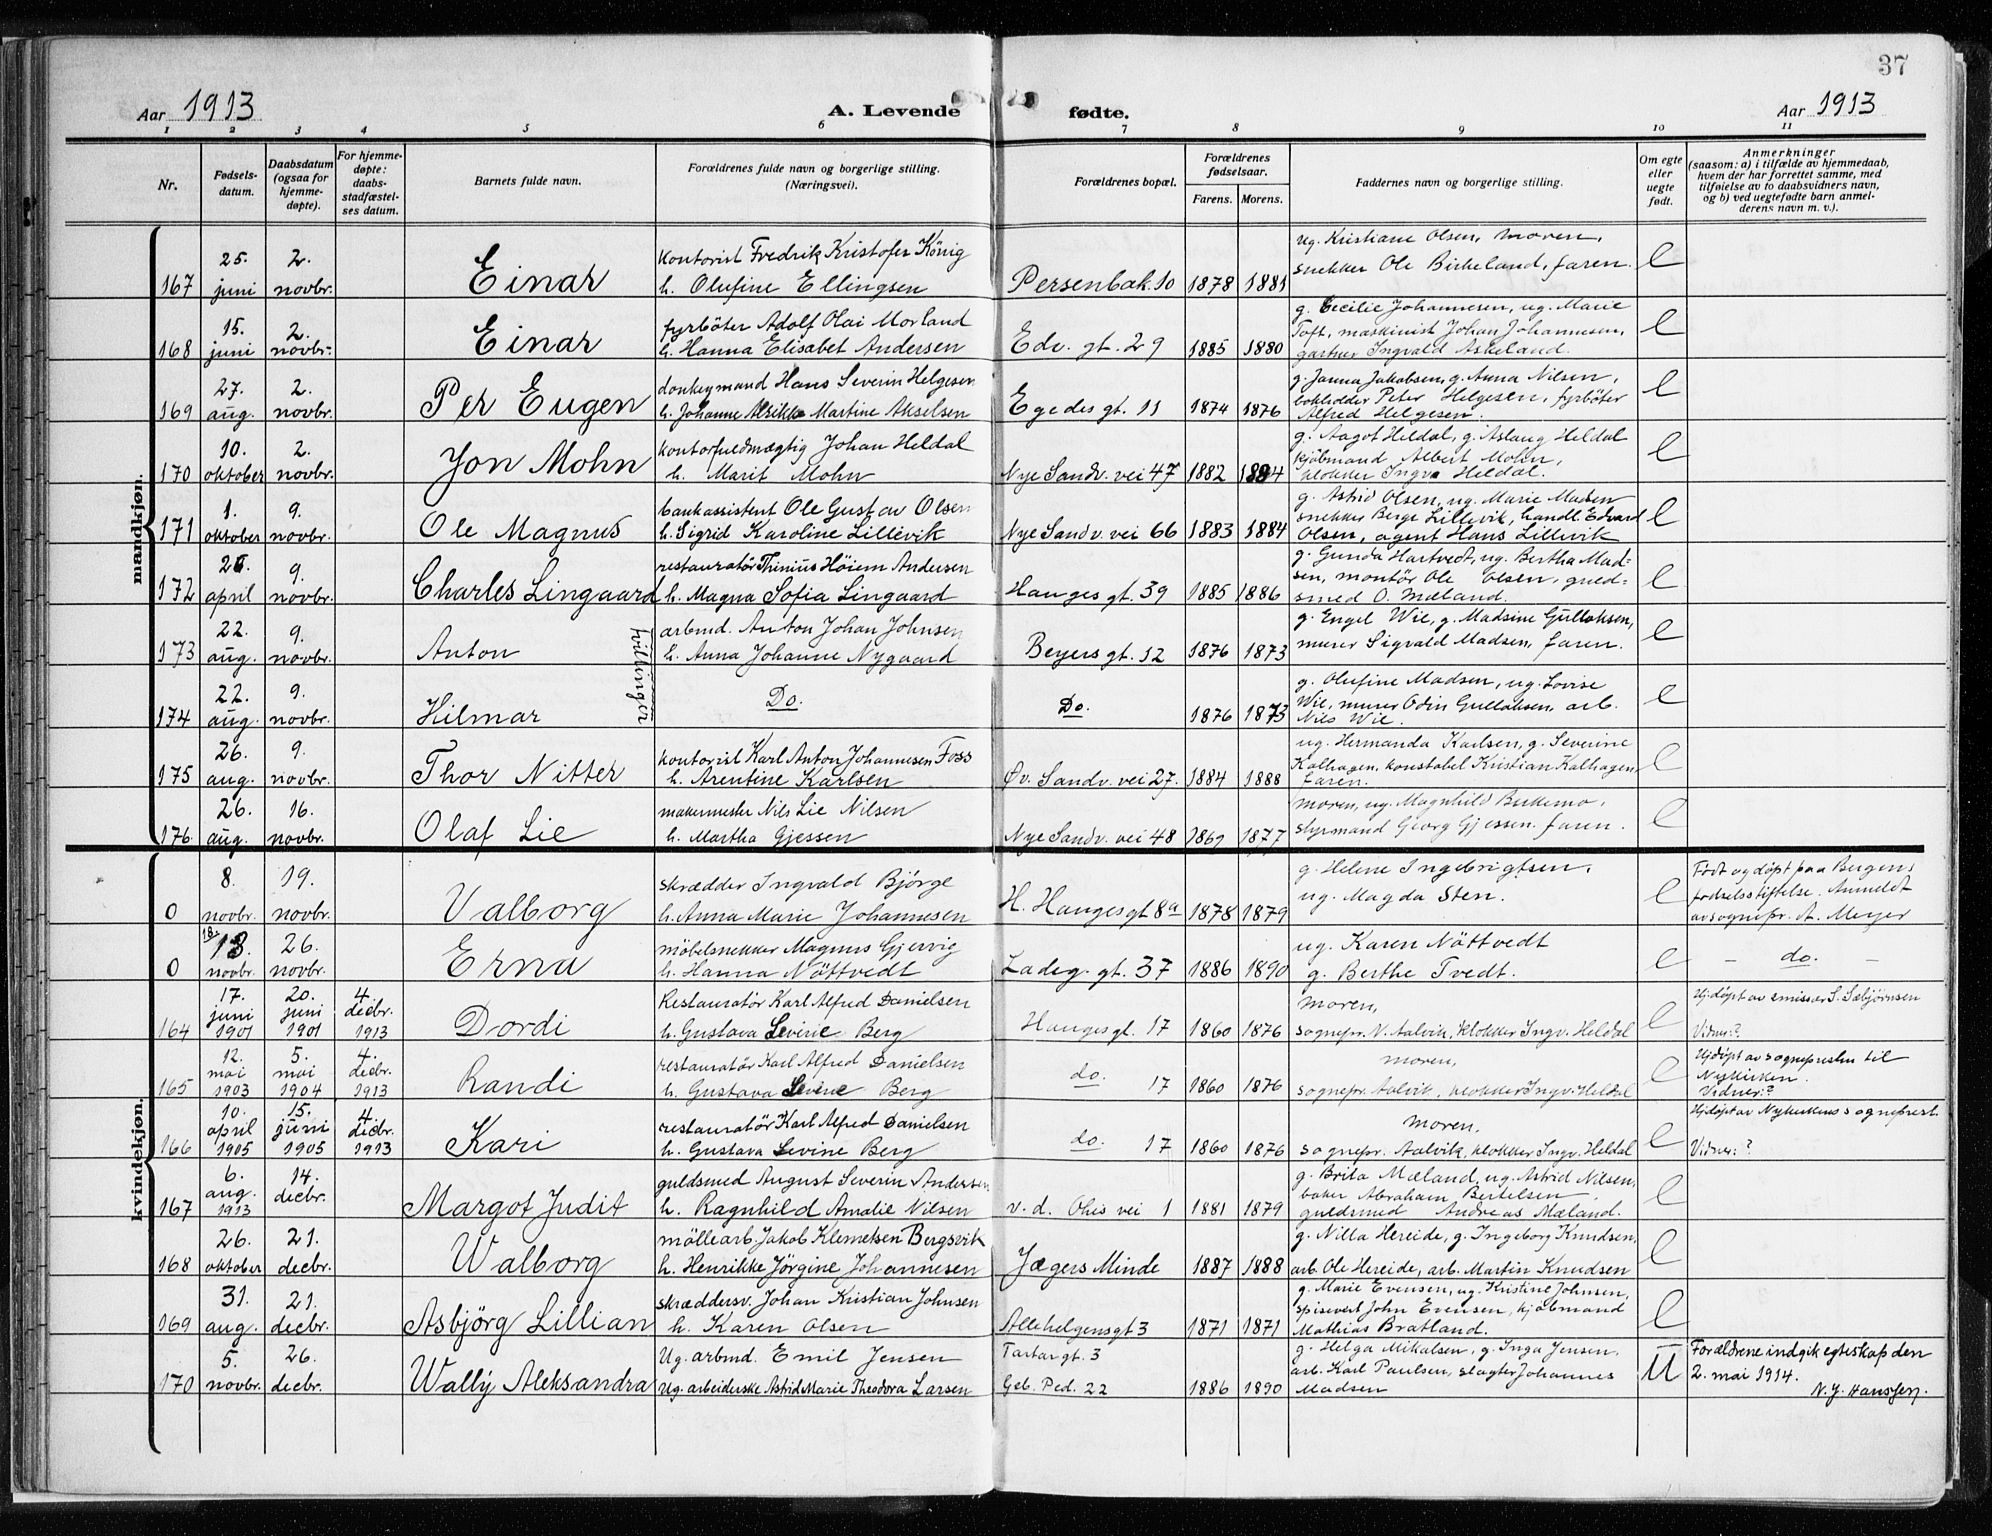 37
Aar 1913
A. Levende fødte.
Aar 1913
1 2 3 4 5 6 7 8 9 10 11
Nr.
Fødsels-
datum.
Daabsdatum
(ogsaa for
hjemme-
døpte).
For hjemme-
døpte:
daabs-
stadfæstel-
ses datum.
Barnets fulde navn.
Forældrenes fulde navn og borgerlige stilling.
(Næringsvei).
Forældrenes bopæl.
Forældrenes
fødselsaar.
Farens. Morens.
Faddernes navn og borgerlige stilling.
Om egte
eller
uegte
født.
Anmerkninger
(saasom: a) i tilfælde av hjemmedaab,
hvem der har forrettet samme, med
tilføielse av to daabsvidners navn,
og b) ved uegtefødte barn anmel-
derens navn m. v.).
mandkjøn.
167 25. juni 2. novbr. Einar
kontorist Fredrik Kristofer König
h. Olufine Ellingsen
Persenbak. 10 1878 1881
ug. Kristiane Olsen, moren,
snekker Ole Birkeland, faren. e
168 15. juni 2. novbr. Einar
fyrbøter Adolf Olai Morland
h. Hanna Elisabet Andersen
Edv. gt. 29 1885 1880
g. Cecilie Johannesen, ug. Marie
Toft, maskinist Johan Johannesen,
gartner Ingvald Askeland. e
169 27. aug. 2. novbr. Per Eugen
donkeymand Hans Severin Helgesen
h. Johanne Alrikke Martine Akselsen
Egedes gt. 11 1874 1876
g. Janna Jakobsen, g. Anna Nilsen,
bokholder Peter Helgesen, fyrbøter
Alfred Helgesen. e
170 10. oktober 2. novbr. Jon Mohn
kontorfuldmægtig Johan Heldal
h. Marit Mohn
Nye Sandv. vei 47 1882 1884
g. Aagot Heldal, g. Aslaug Heldal
kjøbmand Albert Mohn,
klokker Ingv. Heldal. e
171 1. oktober 9. novbr. Ole Magnus
bankassistent Ole Gustav Olsen
h. Sigrid Karoline Lillevik
Nye Sandv. vei 66 1883 1884
g. Astrid Olsen, ug. Marie Madsen
snekker Berge Lillevik, handl. Edvard
Olsen, agent Hans Lillevik e
172 april 9. novbr. Charles Lingaard
restauratør Thinius Höiem Andersen
h. Magna Sofia Lingaard
Hauges gt. 39 1885 1886
g. Gunda Hartvedt, ug. Bertha Mad-
sen, montør Ole Olsen, guld-
smed O. Mæland. e
173 22. aug. 9. novbr. Anton
tvillinger
arbmd. Anton Johan Johnsen
h. Anna Johanne Nygaard
Beyers gt. 12 1876 1873
g. Engel Wie, g. Madsine Gullaksen,
murer Sigvald Madsen, faren. e
174 22. aug. 9. novbr. Hilmar
Do.
Do. 1876 1873
g. Olufine Madsen, ug. Lovise
Wie, murer Odin Gullaksen, arb.
Nils Wie. e
175 26. aug. 9. novbr. Thor Nitter
kontorist Karl Anton Johannesen Foss
h. Arentine Karlsen
Øv. Sandv. vei 27. 1884 1888
ug. Hermanda Karlsen, g. Severine
Kalhagen, konstabel Kristian Kalhagen,
faren. e
176 26. aug. 16. novbr. Olaf Lie
makermester Nils Lie Nilsen
h. Martha Gjessen
Nye Sandv. vei 48 1869 1877
moren, ug. Magnhild Birkemo,
styrmand Georg Gjessen. faren. e
kvindekjøn.
0 8. novbr. 19. novbr. Valborg
skrædder Ingvald Bjørge
h. Anna Marie Johannesen
H. Hauges gt 8a 1878 1879
g. Helene Ingebrigtsen,
ug. Magda Sten. e
Født og døpt paa Bergens
fødselsstiftelse. Anmeldt
av sognepr. A. Meyer
0 18. 13. novbr. 26. novbr. Erna
möbelsnekker Magnus Gjervig
h. Hanna Nöttvedt
Ladeg. gt. 37 1886 1890
ug. Karen Nöttvedt
g. Berthe Tvedt. e
– do. –
164 17. juni 1901 20. juni 1901 4. decbr. 1913 Dordi
Restauratør Karl Alfred Danielsen
h. Gustava Sevine Berg
Hauges gt. 17 1860 1876
moren,
sognepr. N. Aalvik, klokker Ingv. Heldal e
Hjdøpt av emissær S. Sæbjørnsen
Vidner:?
165 12. mai 1903 5. mai 1904 4. decbr. 1913 Randi
restauratør Karl Alfred Danielsen
h. Gustava Sevine Berg
do. 17 1860 1876
moren,
sognepr. Aalvik, klokker Ingv. Heldal e
Hjdøpt av sognepresten til
Nykirken.
Vidner:?
166 10. april 1905 15. juni 1905 4. decbr. 1913 Kari
restauratør Karl Alfred Danielsen
h. Gustava Sevine Berg
do. 17 1860 1876
moren,
sognepr. Aalvik, klokker Ingv. Heldal e
Hjdøpt av Nykirkens sogneprest
Vidner:?
167 6. aug. 1913 14. decbr. Margot Judit
guldsmed August Severin Andersen
h. Ragnhild Amalie Nilsen
v. d. Ohis vei 1 1881 1879
g. Brita Mæland, ug. Astrid Nilsen,
baker Abraham Bertelsen,
guldsmed Andreas Mæland. e
168 26. oktober 21. decbr. Walborg
möllearb. Jakob Klemetsen Bergsvik
h. Henrikke Jörgine Johannesen
Jægers Minde 1887 1888
g. Nilla Hereide, g. Ingeborg Knudsen,
arb. Ole Hereide, arb. Martin Knudsen e
169 31. aug. 21. decbr. Asbjörg Lillian
skræddersv. Johan Kristian Johnsen
h. Karen Olsen
Allehelgensgt 3 1871 1871
g. Marie Evensen, ug. Kristine Johnsen,
spisevert John Evensen, kjøbmand
Mathias Bratland. e
170 5. novbr. 26. decbr. Wally Aleksandra
Ug. arbmd. Emil Jensen
Ug. arbeiderske Astrid Marie Theodora Larsen
Tartargt. 3
Geb. Ped. 22 1886 1890
g. Helga Mikalsen, g. Inga Jensen,
arb. Karl Paulsen, slagter Johannes
Madsen U
Forældrene indgik egteskap den
2. mai 1914.
N. J. Hanssen.